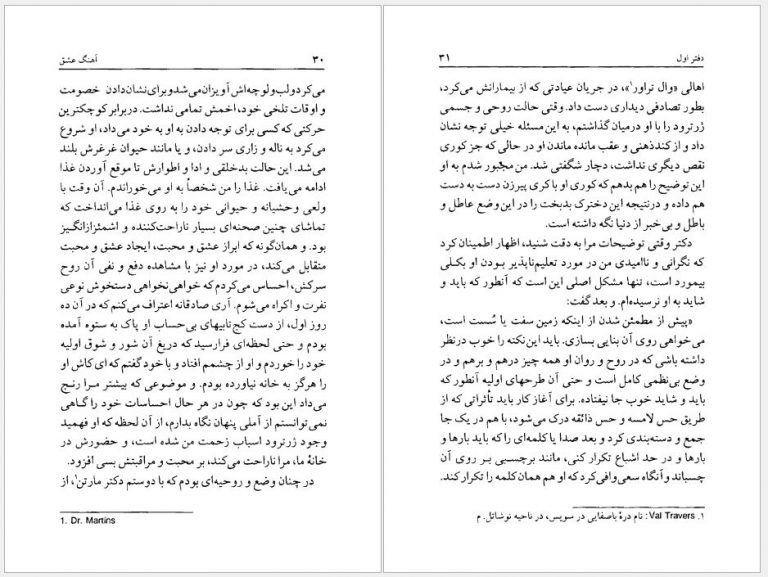 ۳۰
آهنگ عشق
می‌کرد و لب و لوچه‌اش آویزان می‌شد و برای نشان دادن خصومت
و اوقات تلخی خود، اخمش تمامی نداشت. در برابر کوچکترین
حرکتی که کسی برای توجه دادن به او به خود می‌داد، او شروع
می‌کرد به ناله و زاری سر دادن، و یا مانند حیوان غرغرش بلند
می‌شد. این حالت بدخلقی و ادا و اطوارش تا موقع آوردن غذا
ادامه می‌یافت. غذا را من شخصاً به او می‌خوراندم. آن وقت با
ولعی وحشیانه و حیوانی خود را به روی غذا می‌انداخت که
تماشای چنین صحنه‌ای بسیار ناراحت‌کننده و اشمئزازانگیز
بود. و همان‌گونه که ابراز عشق و محبت، ایجاد عشق و محبت
متقابل می‌کند، در مورد او نیز با مشاهده دفع و نفی آن روح
سرکش، احساس می‌کردم که خواهی‌نخواهی دستخوش نوعی
نفرت و اکراه می‌شوم. آری صادقانه اعتراف می‌کنم که در آن ده
روز اول، از دست کج‌تابیهای بی‌حساب او پاک به ستوه آمده
بودم و حتی لحظه‌ای فرارسید که دریغ آن شور و شوق اولیه
خود را خوردم و او از چشمم افتاد و با خود گفتم که ای کاش او
را هرگز به خانه نیاورده بودم. و موضوعی که بیشتر مرا رنج
می‌داد این بود که چون در هر حال احساسات خود را گاهی
نمی‌توانستم از آملی پنهان نگاه بدارم، از آن لحظه که او فهمید
وجود ژرترود اسباب زحمت من شده است، و حضورش در
خانهٔ ما، مرا ناراحت می‌کند، بر محبت و مراقبتش بسی افزود.
در چنان وضع و روحیه‌ای بودم که با دوستم دکتر مارتن۱، از
1. Dr. Martins
دفتر اول
۳۱
اهالی «وال تراور۱»، در جریان عیادتی که از بیمارانش می‌کرد،
بطور تصادفی دیداری دست داد. وقتی حالت روحی و جسمی
ژرترود را با او درمیان گذاشتم، به این مسئله خیلی توجه نشان
داد و از کندذهنی و عقب مانده ماندن او در حالی که جز کوری
نقص دیگری نداشت، دچار شگفتی شد. من مجبور شدم به او
این توضیح را هم بدهم که کوری او با کری پیرزن دست به دست
هم داده و درنتیجه این دخترک بدبخت را در این وضع عاطل و
باطل و بی‌خبر از دنیا نگه داشته است.
دکتر وقتی توضیحات مرا به دقت شنید، اظهار اطمینان کرد
که نگرانی و ناامیدی من در مورد تعلیم‌ناپذیر بودن او بکلی
بیمورد است، تنها مشکل اصلی این است که آنطور که باید و
شاید به او نرسیده‌ام. و بعد گفت:
«پیش از مطمئن شدن از اینکه زمین سفت یا سُست است،
می‌خواهی روی آن بنایی بسازی. باید این‌نکته را خوب درنظر
داشته باشی که در روح و روان او همه چیز درهم و برهم و در
وضع بی‌نظمی کامل است و حتی آن طرحهای اولیه آنطور که
باید و شاید خوب جا نیفتاده. برای آغاز کار باید تأثراتی که از
طریق حس لامسه و حس ذائقه درک می‌شود، با هم در یک جا
جمع و دسته‌بندی کرد و بعد صدا یا کلمه‌ای را که باید بارها و
بارها و در حد اشباع تکرار کنی، مانند برچسبی بر روی آن
چسباند و آنگاه سعی وافی کرد که او هم همان کلمه را تکرار کند.
۱. Val Travers: نام درهٔ باصفایی در سویس، در ناحیه نوشاتل. م